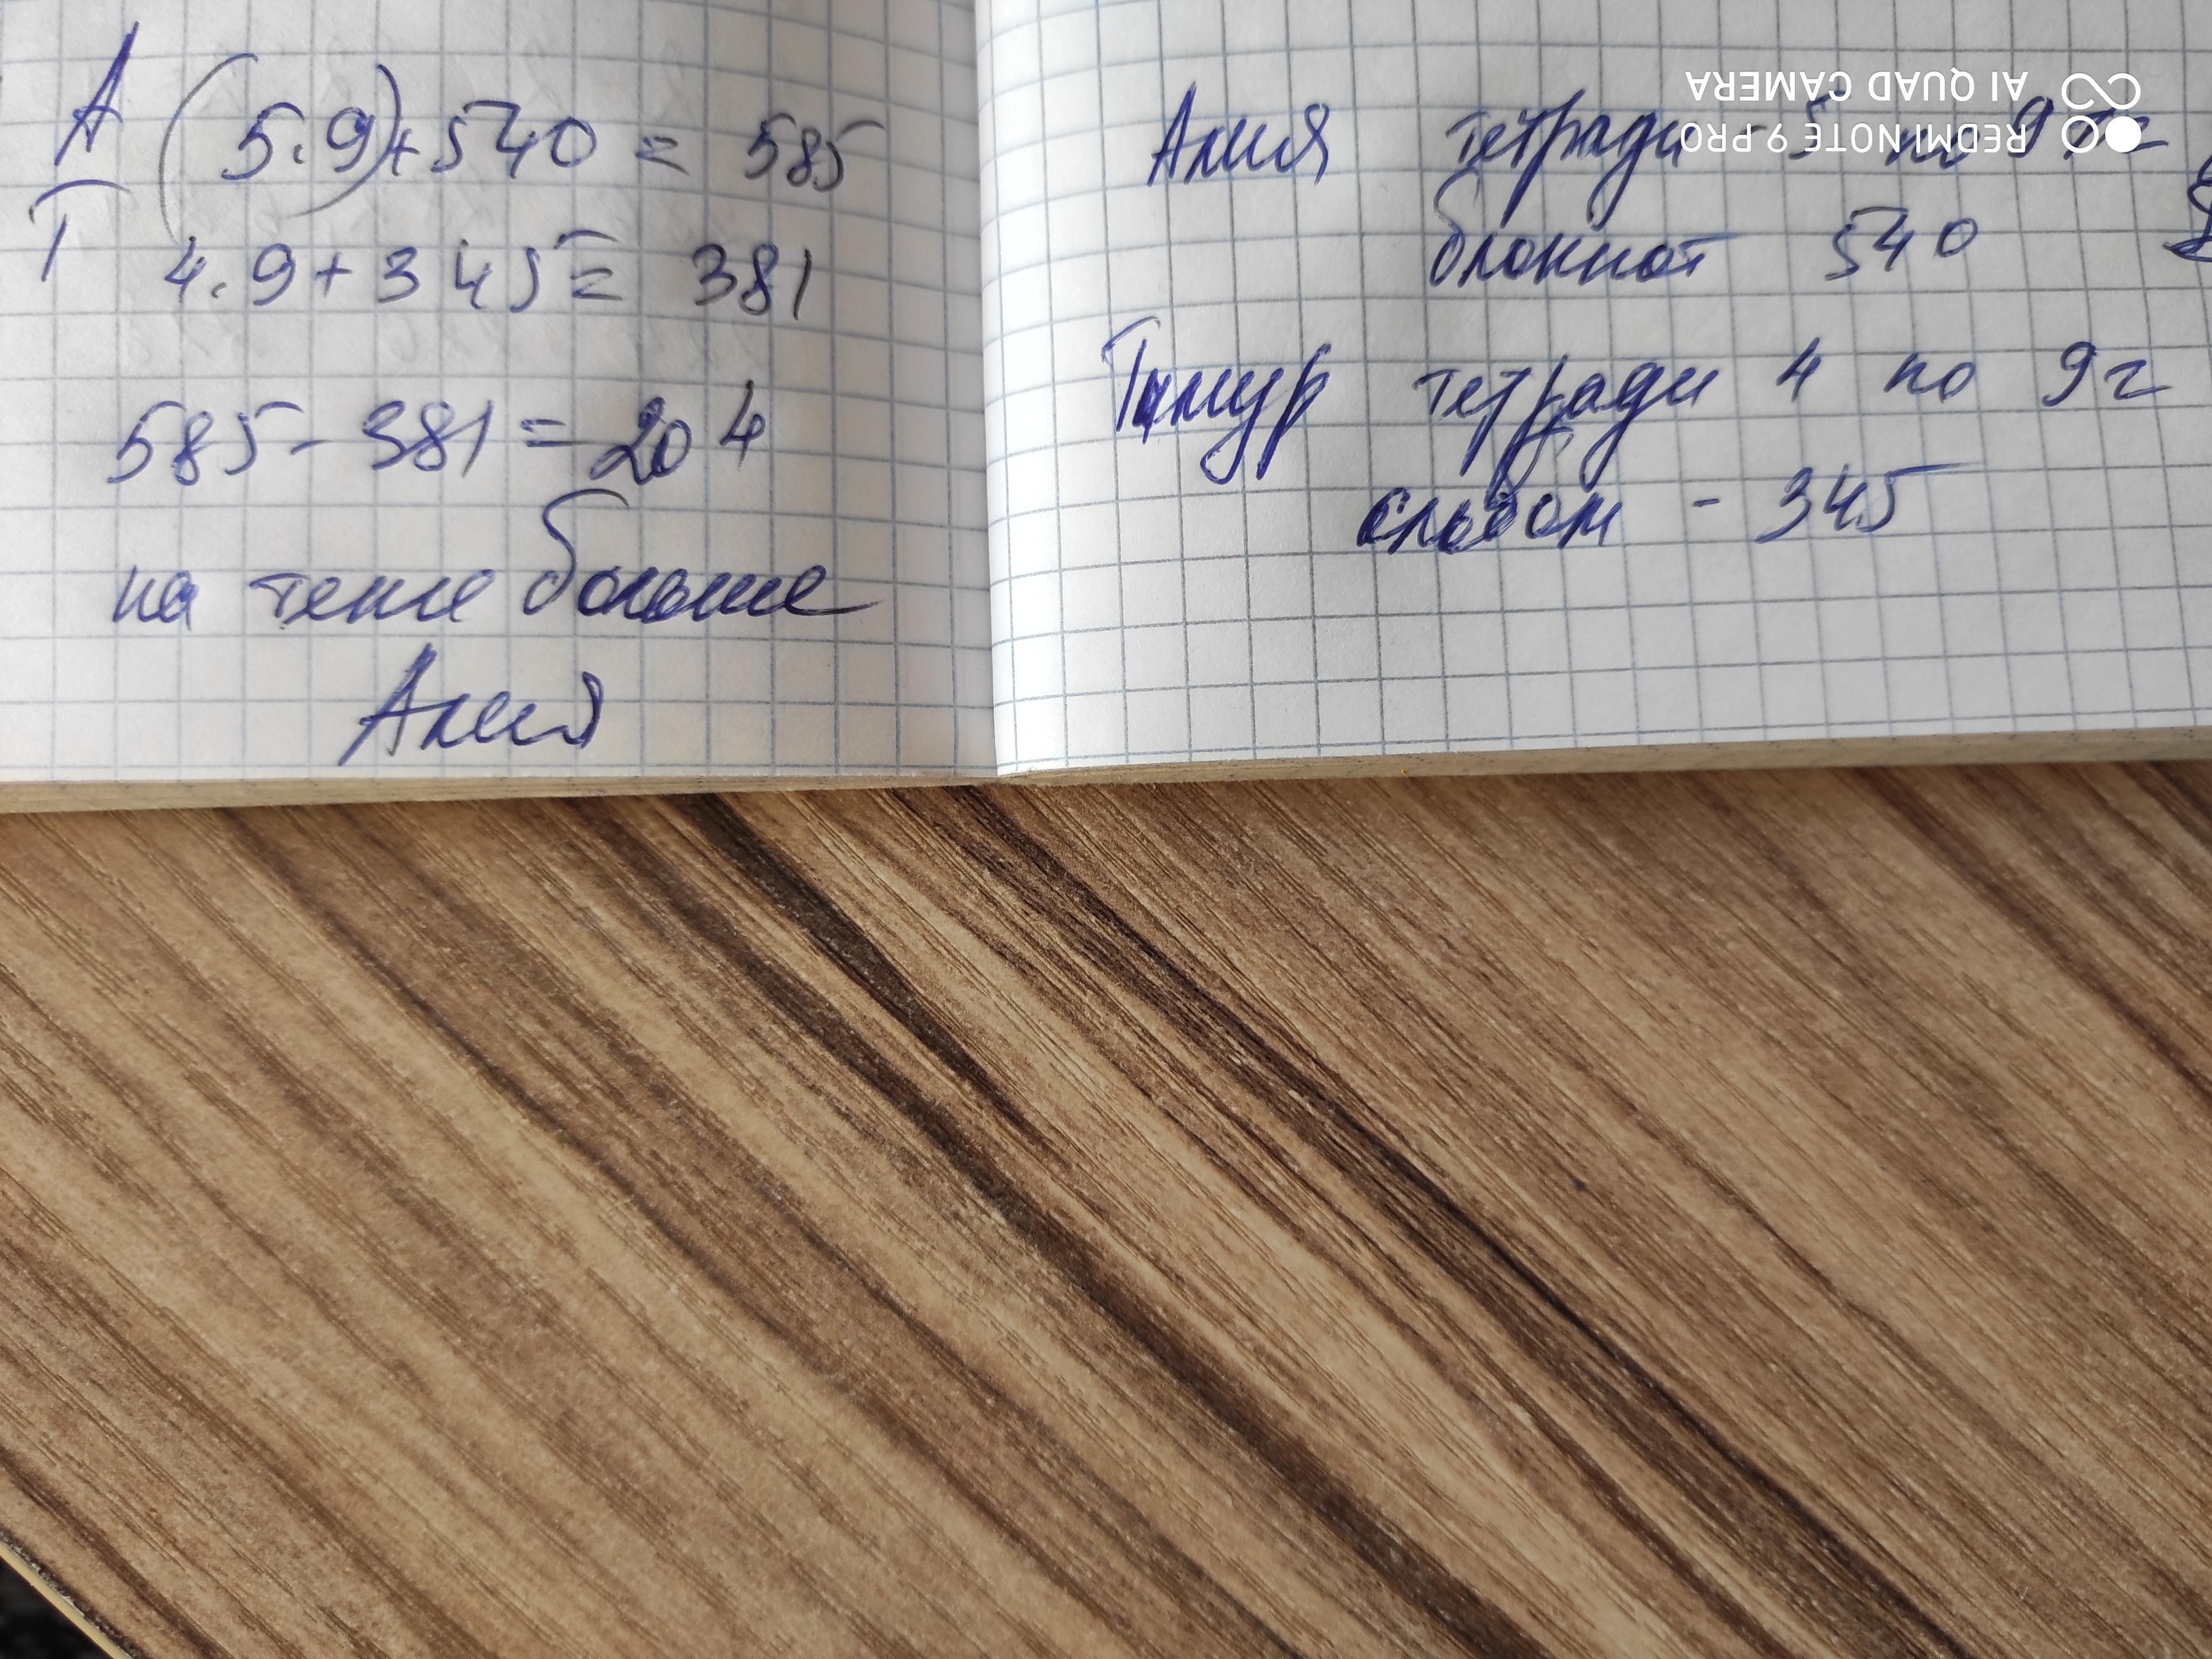 А (5.9)+540 = 585
Т 4.9+345= 381
585- 381 = 204
на тенге больше
Алия
Алия тетради - 5 по 9 тг
блокнот 540
Тимур тетради 4 по 9г
альбом - 345
REDMI NOTE 9 PRO
AI QUAD CAMERA